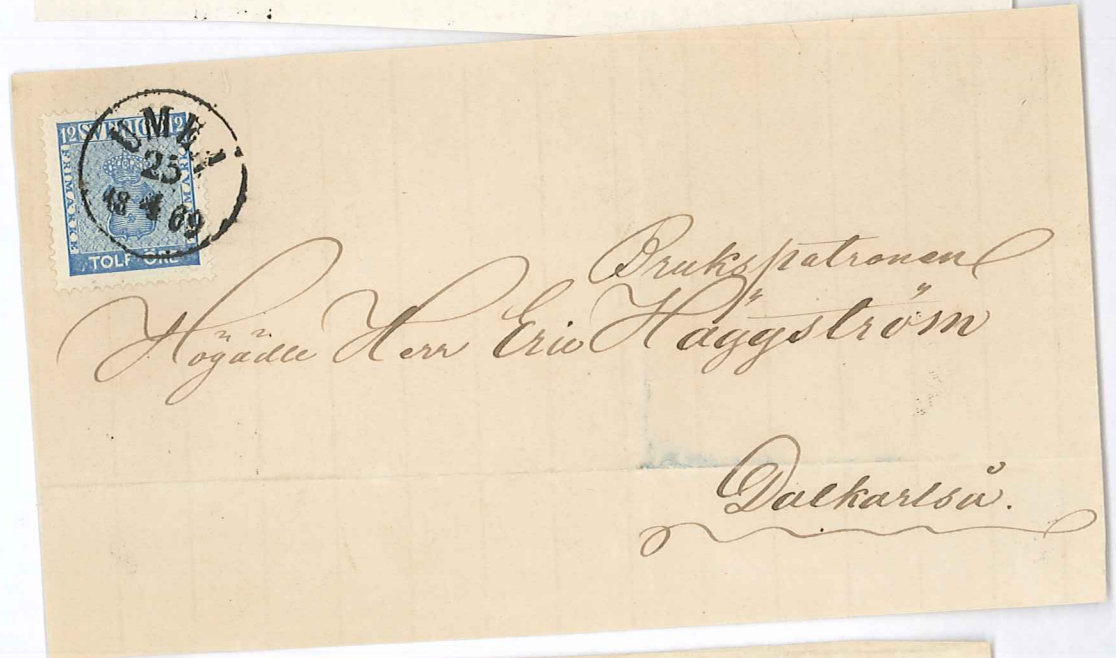 12 SVERIGE 12
FRIMÄRKE
TOLF ÖRE
UMEÅ
25
18 69
Brukspatronen
Högädle Herr Eric Häggström
Dalkarlså.